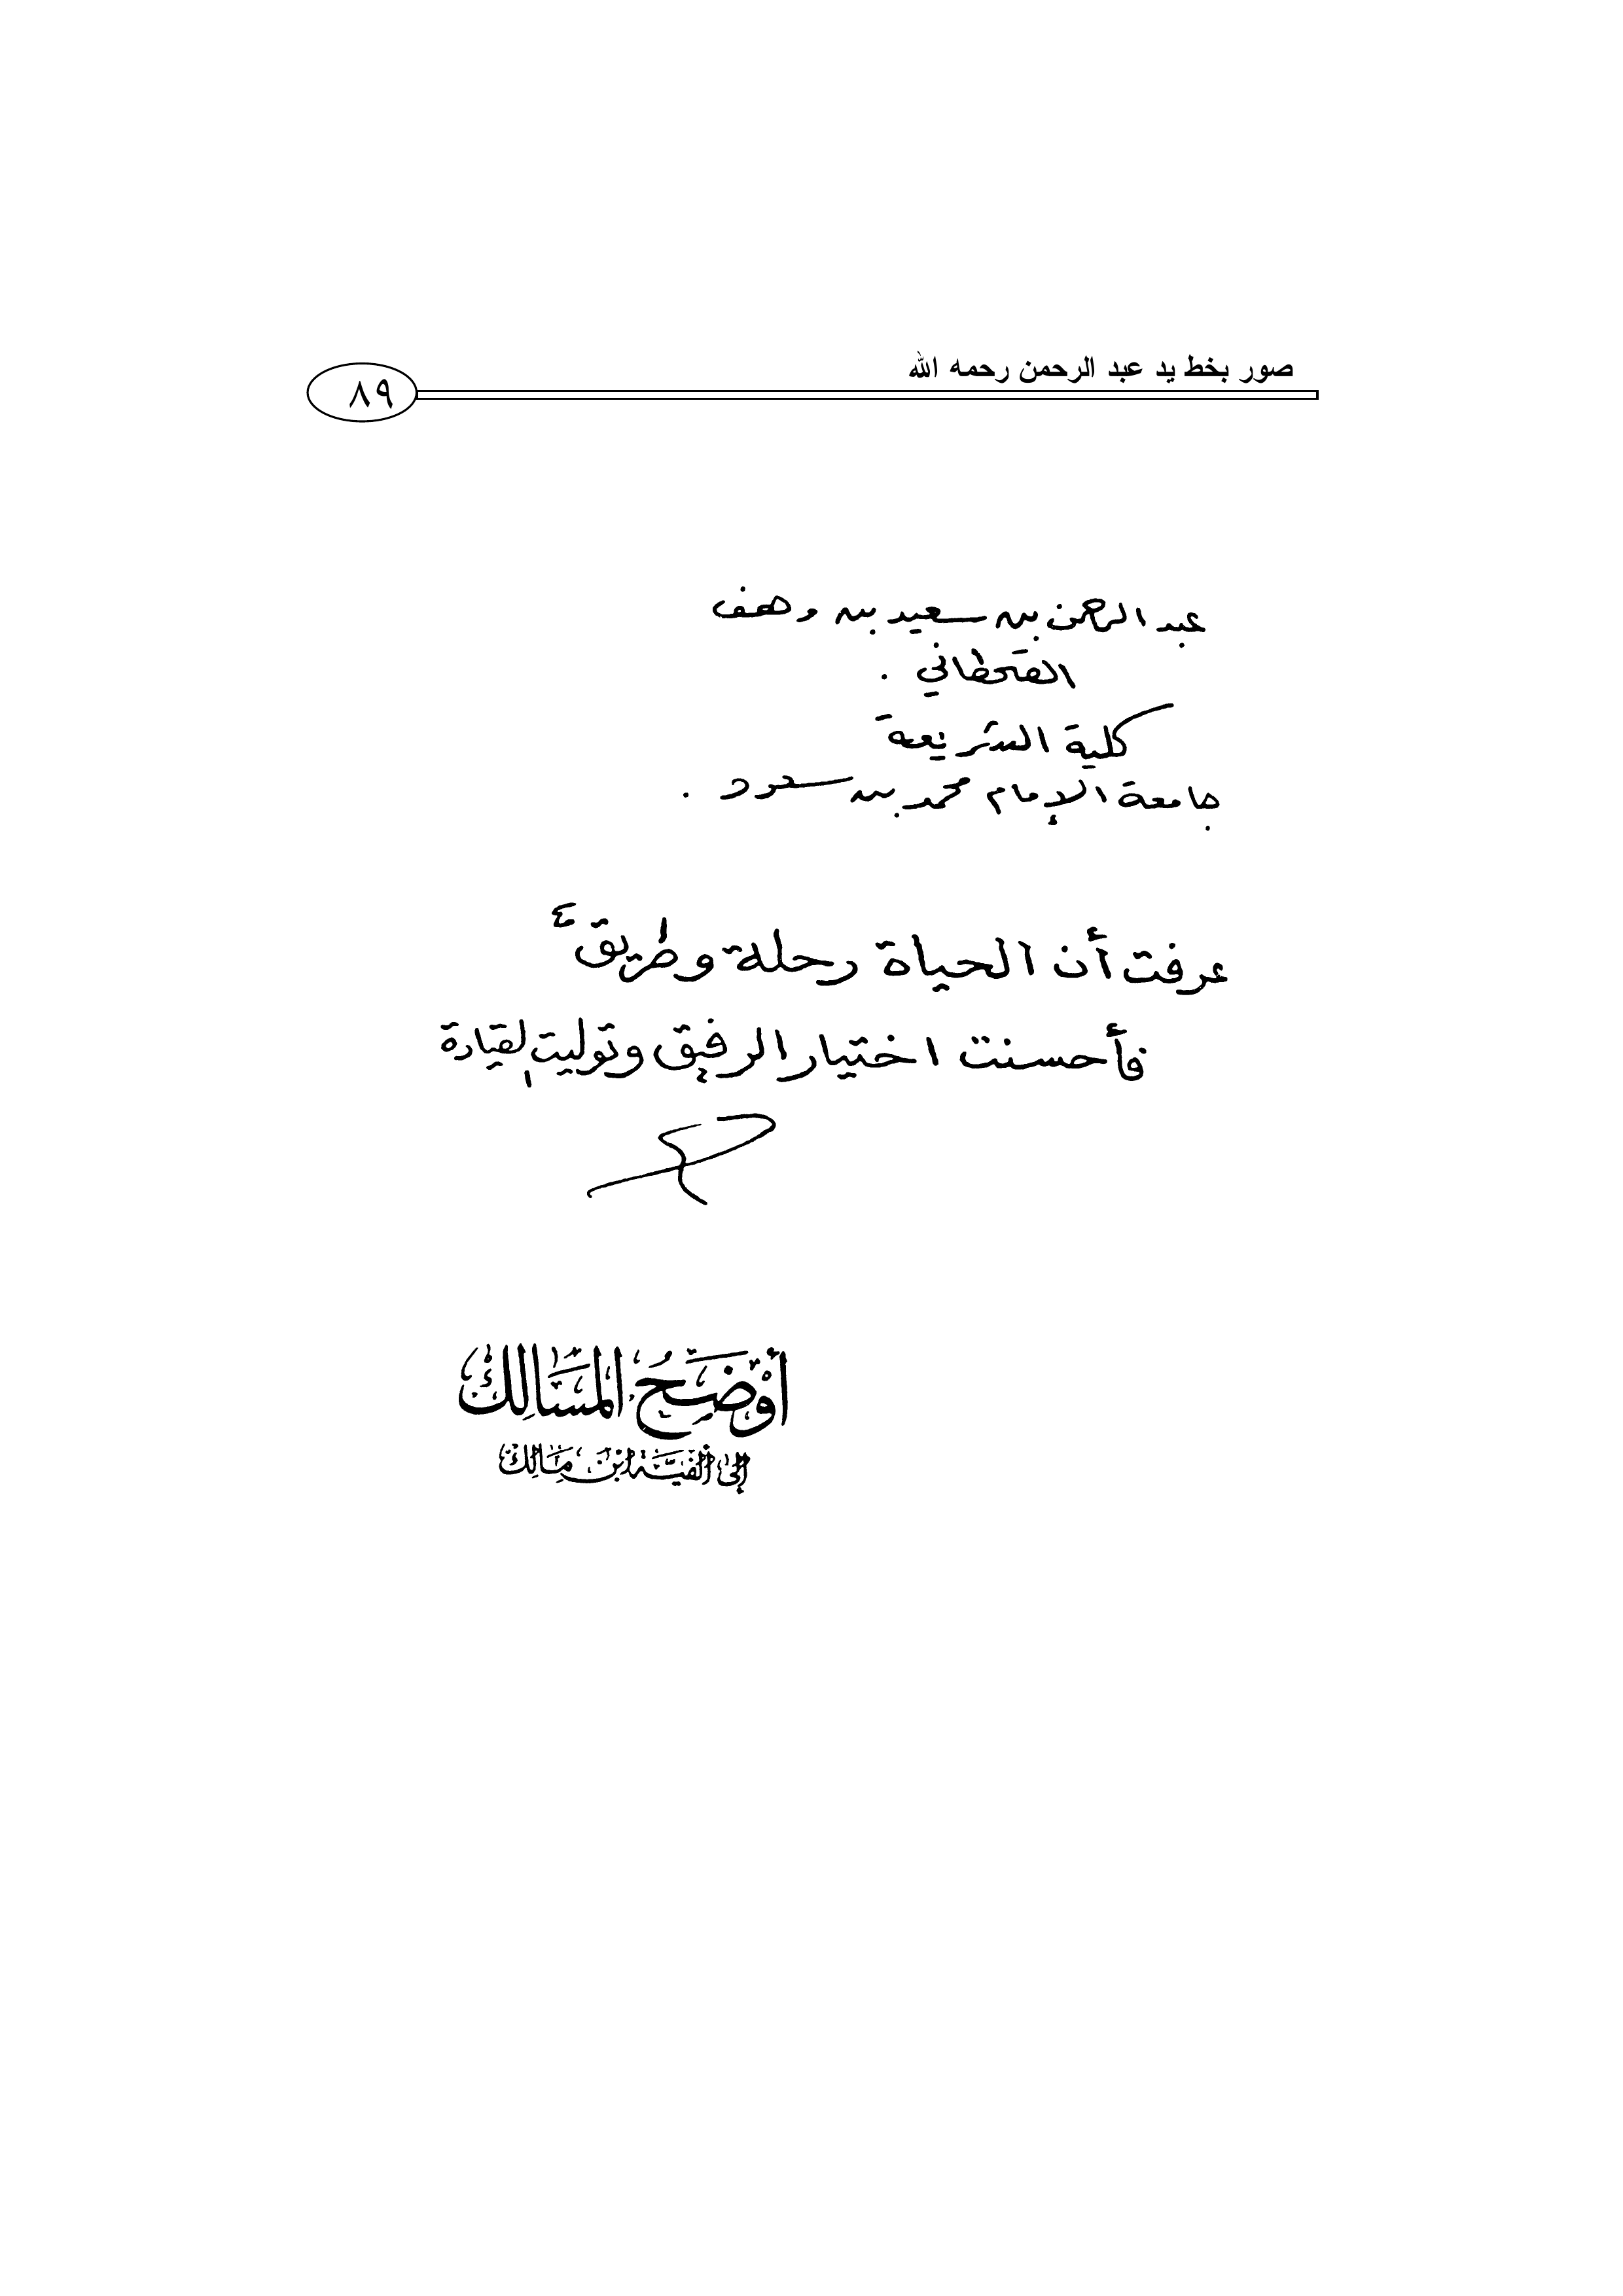 صور بخط يد عبد الرحمن رحمه الله
٨٩
عبد الرحمن بن سعيد بن وهف
القحطاني .
كلية الشريعة
جامعة الإمام محمد بن سعود .
عرفت أن الحياة رحلة وطريق
فأحسنت اختيار الرفيق وتوليت لقيادة
أَوْضَحُ المَسَالِك
إلى ألفيَّة ابن مَالِك